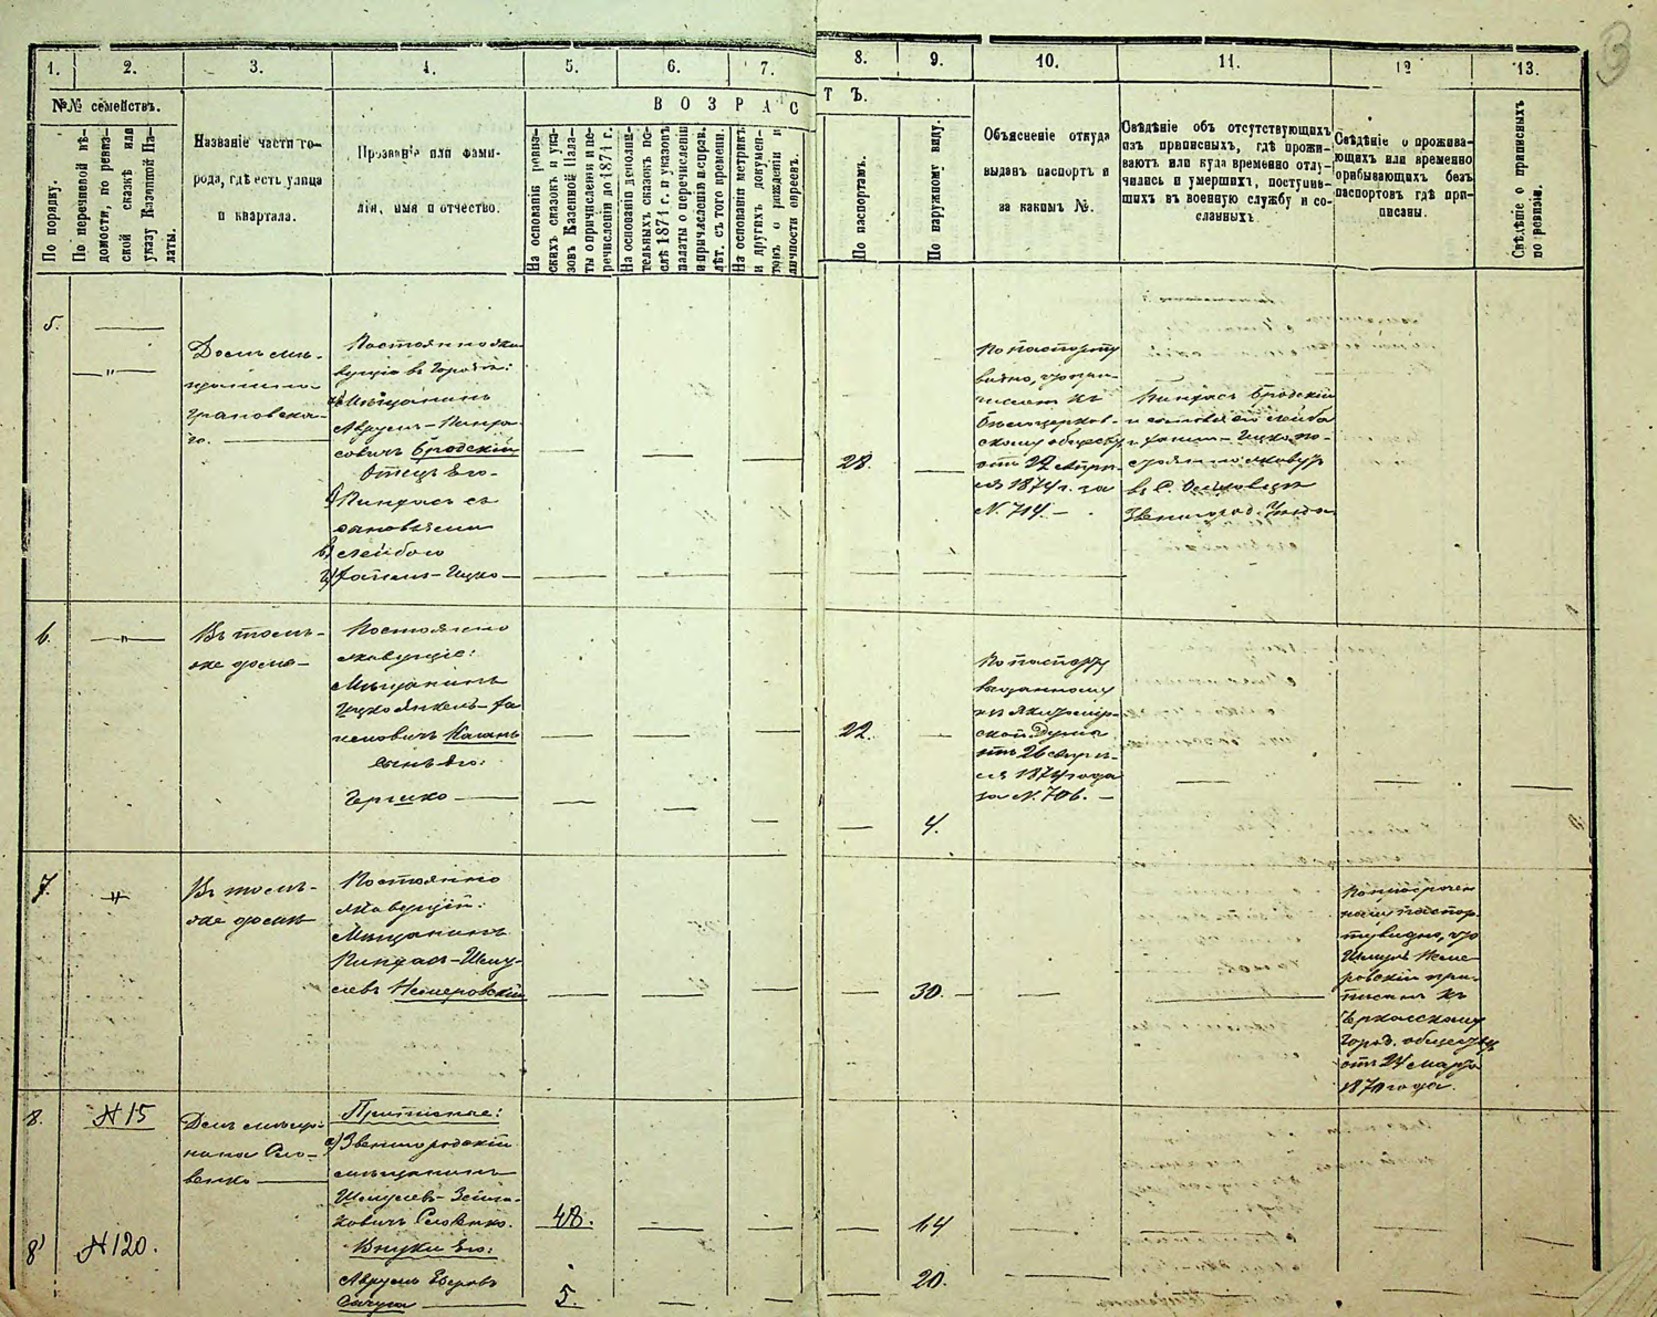 3
1. 2. 3. 4. 5. 6. 7. 8. 9. 10. 11. 12 13.
№№ семействъ.
В О З Р А С Т Ъ.
По порядку.
По перечневой вѣ-
домости, по ревиз-
ской сказкѣ или
указу Казенной Па-
латы.
Названіе части го-
рода, гдѣ есть улица
и квартала.
Прозваніе или фами-
лія, имя и отчество.
На основаніи ревиз-
скихъ сказокъ и ука-
зовъ Казенной Пала-
ты о причисленіи и пе-
речисленіи до 1871 г.
На основаніи дополни-
тельныхъ сказокъ по-
слѣ 1871 г. и указовъ
палаты о перечисленіи
и причисленіи исправ.
лѣт. съ того времени.
На основаніи метрикъ
и другихъ докумен-
товъ о рожденіи и
личности евреевъ.
По паспортамъ.
По наружному виду.
Объясненіе откуда
выданъ паспортъ и
за какимъ №.
Свѣдѣніе объ отсутствующихъ
изъ приписныхъ, гдѣ прожи-
ваютъ или куда временно отлу-
чились и умершихъ, поступив-
шихъ въ военную службу и со-
сланныхъ.
Свѣдѣніе о прожива-
ющихъ или временно
прибывающихъ безъ
паспортовъ гдѣ при-
писаны.
Свѣдѣніе о приписныхъ
по ревизіи.
5.
Домъ мѣ-
щанина
Грановска-
го.
Постоянно жи-
вущіе въ городѣ:
а) Мѣщанинъ
Аврумъ-Пинха-
совичъ Бродскій
Отецъ его-
б) Пинхасъ съ
сыновьями
в) Лейбою
г) Фаинъ-Ицко
28.
По паспорту
видно, припи-
санъ къ
Бѣлоцерков-
скому обществу
отъ 27 Апрѣ-
ля 1874 г. за
№ 714.
Пинхасъ Бродскій
и сыновья его Лейба
и Фаинъ-Ицко по-
стоянно живутъ
въ С.
Звенигород. Уѣзда
6.
"
Въ томъ-
же домѣ
Постоянно
живущіе:
Мѣщанинъ
Ицко Янкель-Фа
левичъ Каганъ
сынъ его:
Гершко
22.
4.
По паспорту
выданному
изъ Житомір-
ской Думы
отъ 26 Апрѣ-
ля 1874 года
за № 706.
7.
"
Въ томъ-
же домѣ
Постоянно
живущій:
Мѣщанинъ
Пинхасъ-Шму-
левъ Немеровскій
30.
По просрочен
ному паспор-
ту видно, что
Шмуль Неме
ровскій при-
писанъ къ
Черкасскому
Город. обществу
отъ 24 марта
1870 года.
8.
№ 15
Домъ мѣща-
нина Сло-
венко
Приписные:
а) Звенигородскій
мѣщанинъ
Шмулевъ-Зейли-
ковичъ Словенко.
48.
14
8'
№ 120.
Внуки его:
Аврумъ
5.
20.